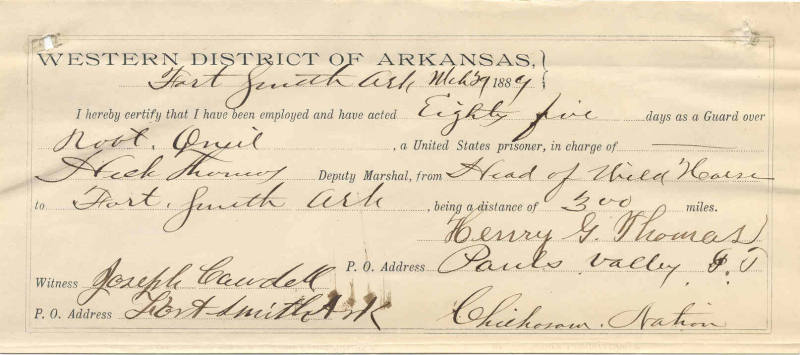 WESTERN DISTRICT OF ARKANSAS,
Fort Smith Ark Mch 29 1889
I hereby certify that I have been employed and have acted Eighty five days as a Guard over
Robt. Oneil, a United States prisoner, in charge of
Heck Thomas Deputy Marshal, from Head of Wild Horse
to Fort. Smith Ark, being a distance of 300 miles.
Henry G. Thomas
P. O. Address Pauls Valley I. T
Witness Joseph Cawdell
P. O. Address Fort Smith Ark
Chickasaw Nation